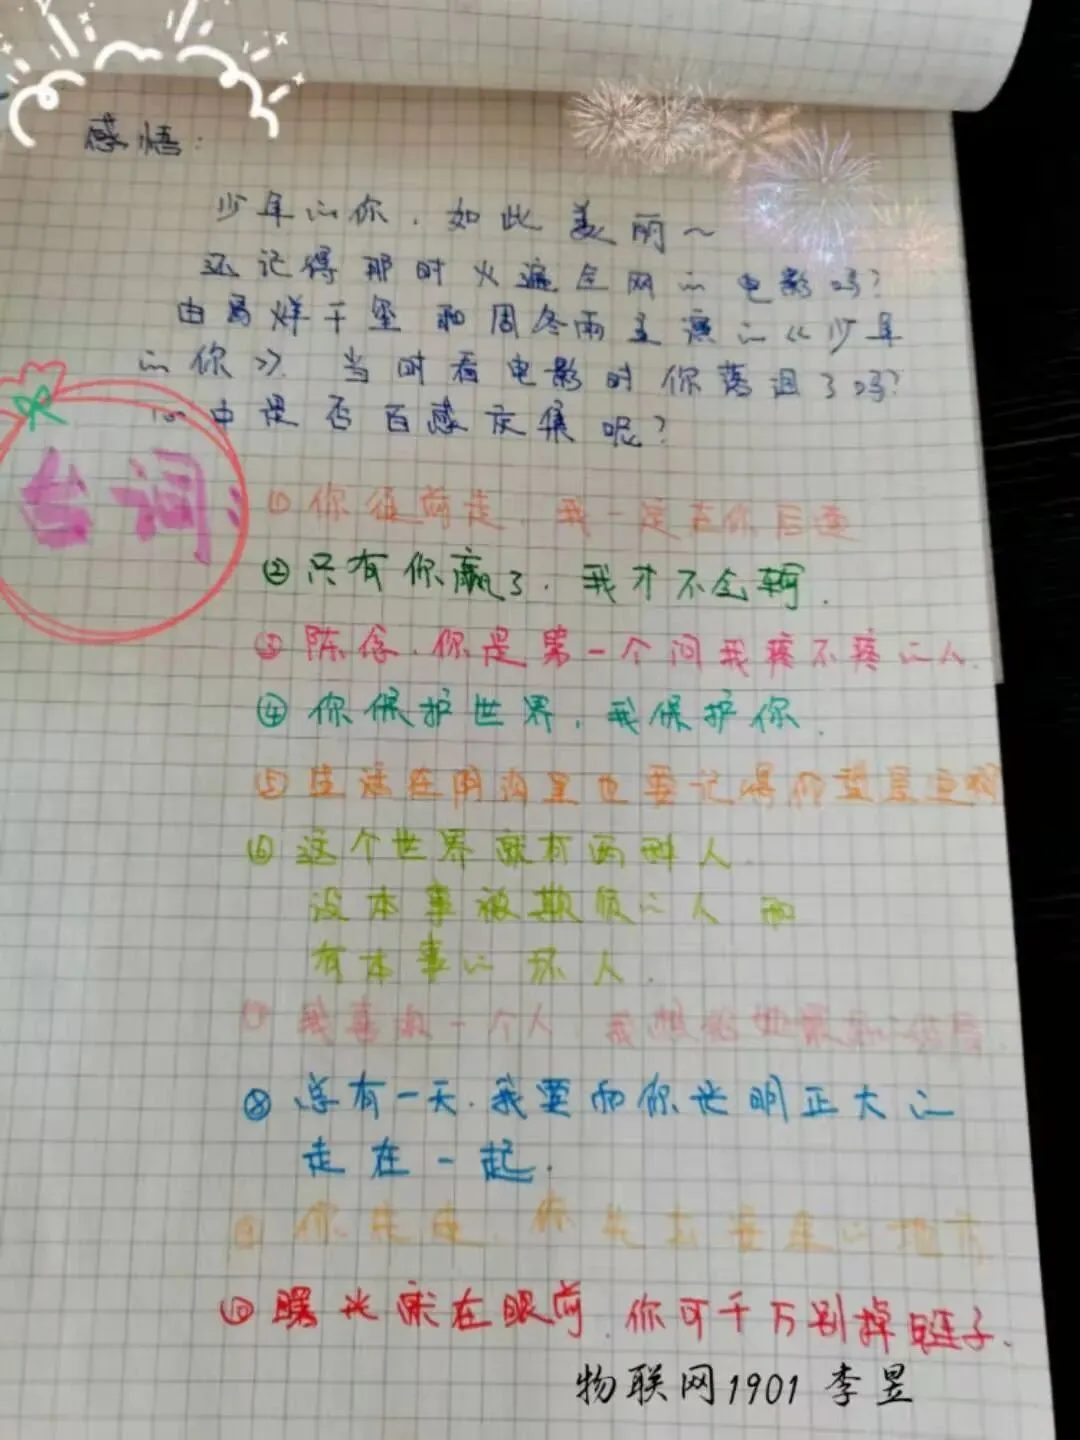 感悟：
少年的你，如此美丽～
还记得那时火遍全网的电影吗？
由易烊千玺和周冬雨主演的《少年
的你》，当时看电影时你落泪了吗？
心中是否百感交集呢？
台词：
①你往前走，我一定在你后边
②只有你赢了，我才不会输．
③陈念，你是第一个问我疼不疼的人．
④你保护世界，我保护你．
⑤生活在阴沟里也要记得仰望星空啊
⑥这个世界就有两种人
没本事被欺负的人和
有本事的坏人．
⑦我喜欢一个人 我想给她最好的结局．
⑧总有一天，我要和你光明正大的
走在一起．
⑨你先走，你先去安全的地方
⑩曙光就在眼前，你可千万别掉链子．
物联网1901 李昱